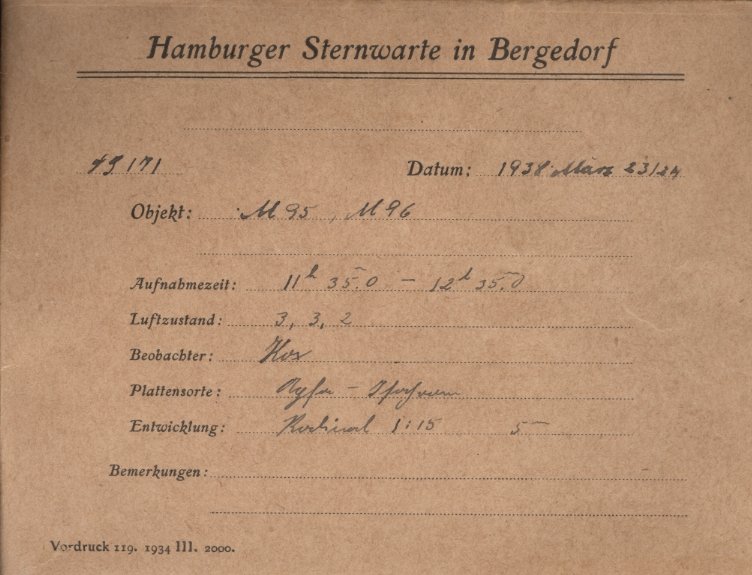 Hamburger Sternwarte in Bergedorf
Datum: 1938 März 23/24
Objekt: M 95, M 96
Aufnahmezeit: 11h 35.0 – 12h 35.0
Luftzustand: 3, 3, 2
Beobachter:
Plattensorte: Agfa –
Entwicklung: Rodinal 1:15 5
Bemerkungen:
Vordruck 119. 1934 III. 2000.